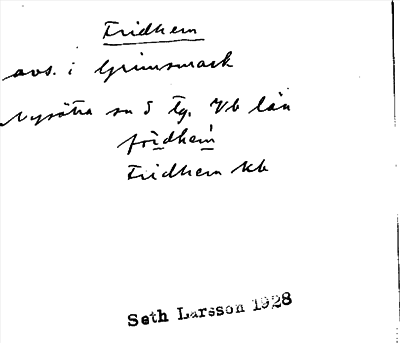 Fridhem
avs. i Grimsmark
Nysätra sn S tg. Vb län
fridhem
Fridhem kb
Seth Larsson 1928